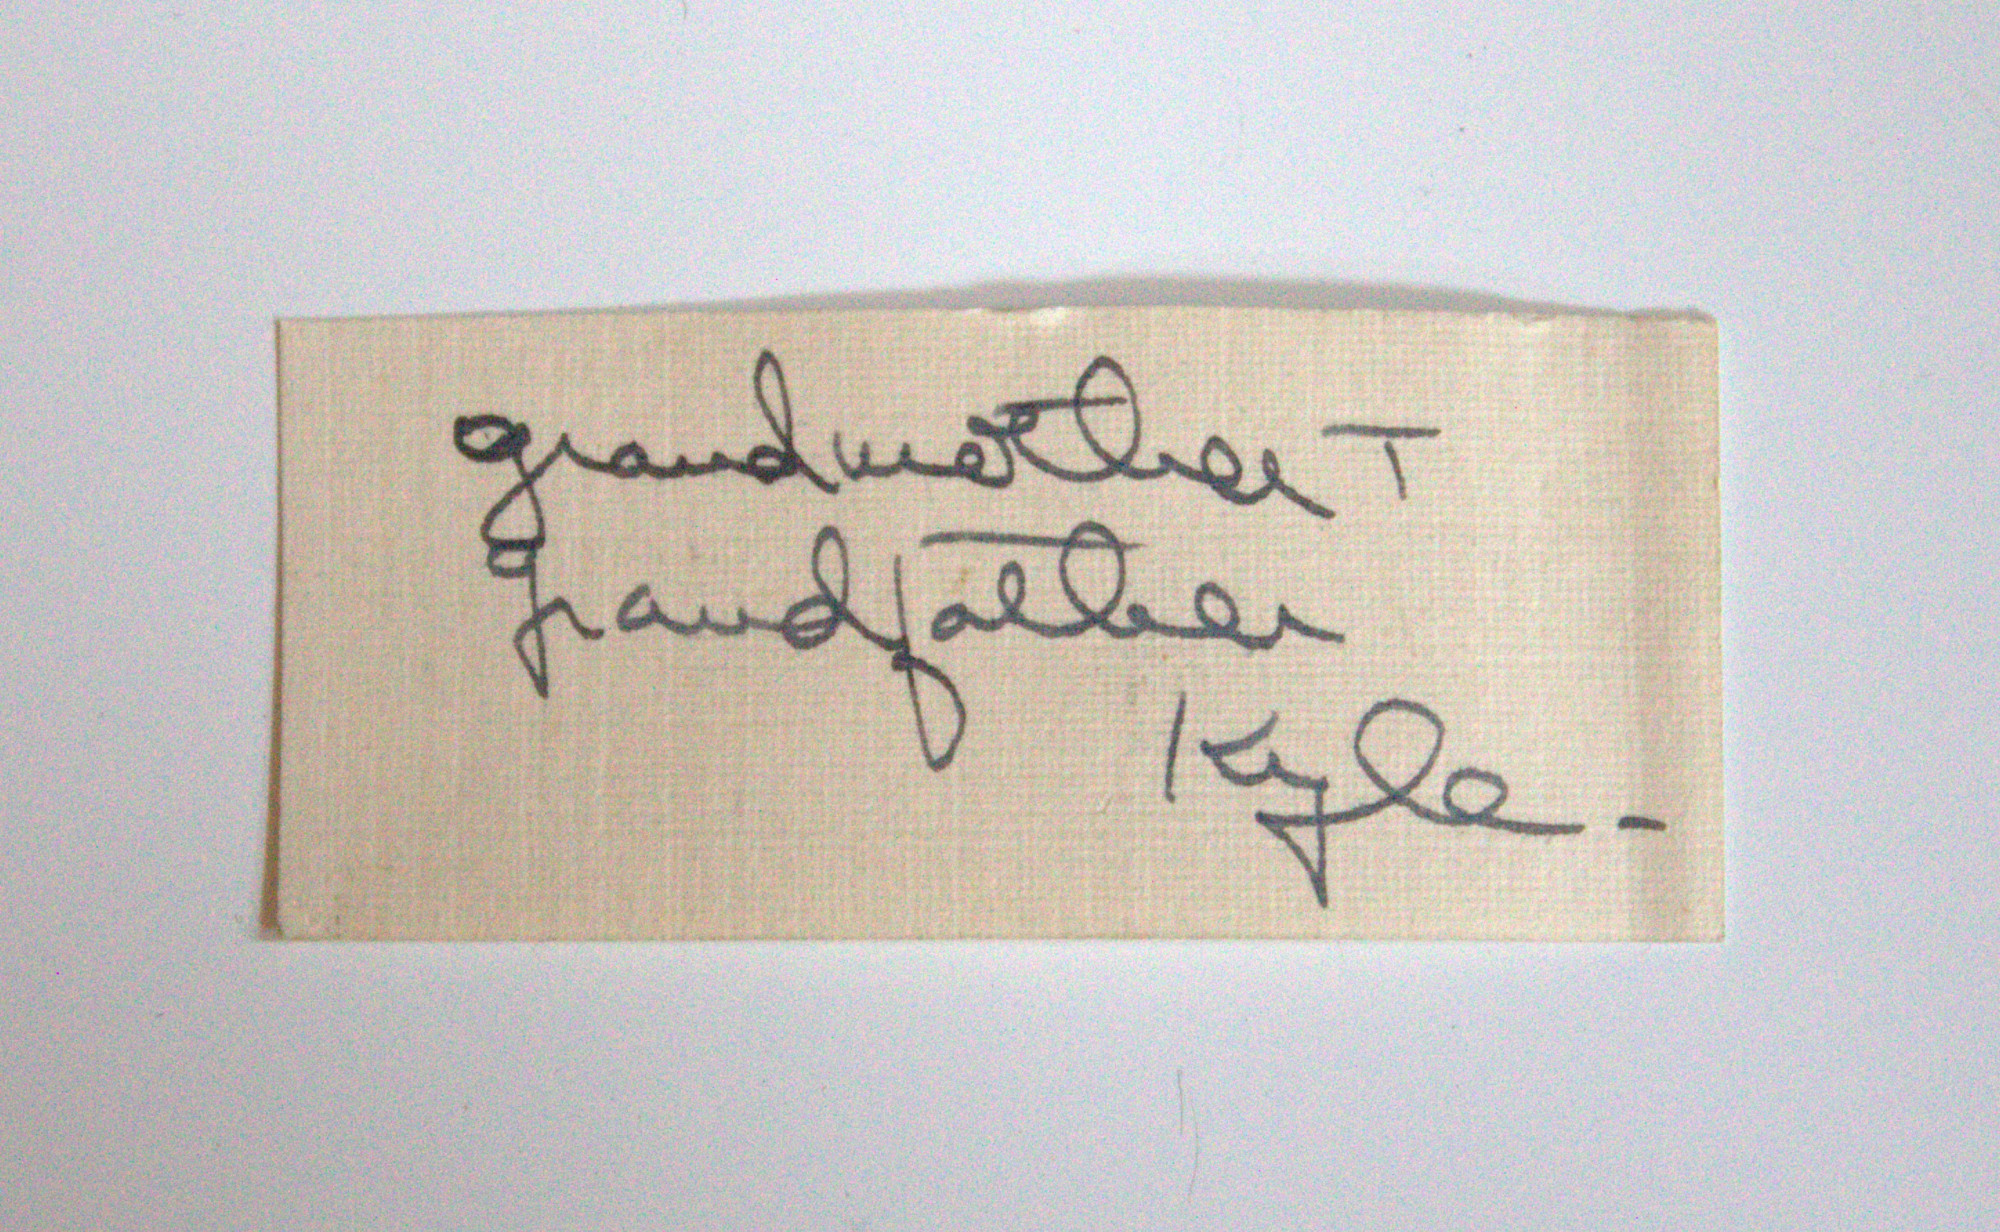 grandmother +
grandfather
Kyle -